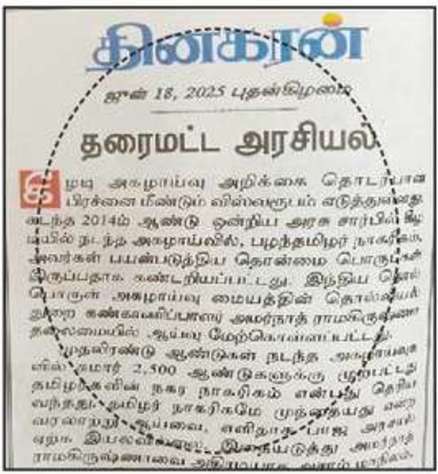 தினகரன்
ஜுன் 18, 2025 புதன்கிழமை
தரைமட்ட அரசியல்
கீழடி அகழாய்வு அறிக்கை தொடர்பான
பிரச்னை மீண்டும் விஸ்வரூபம் எடுத்துள்ளது.
கடந்த 2014ம் ஆண்டு ஒன்றிய அரசு சார்பில் கீழ
டியில் நடந்த அகழாய்வில், பழந்தமிழர் நாகரிகம்,
அவர்கள் பயன்படுத்திய தொன்மை பொருட்கள்
இருப்பதாக கண்டறியப்பட்டது. இந்திய தொல்
பொருள் அகழாய்வு மையத்தின் தொல்லியல்
துறை கண்காணிப்பாளர் அமர்நாத் ராமகிருஷ்ணா
தலைமையில் ஆய்வு மேற்கொள்ளப்பட்டது.
முதலிரண்டு ஆண்டுகள் நடந்த அகழாய்வுக
ளில் சுமார் 2,500 ஆண்டுகளுக்கு முற்பட்டது
தமிழர்களின் நகர நாகரிகம் என்பது தெரிய
வந்தது. தமிழர் நாகரிகமே முந்தையது என்ற
வரலாற்று ஆய்வை, எளிதாக பாஜ அரசால்
ஏற்க இயலவில்லை. இதையடுத்து அமர்நாத்
ராமகிருஷ்ணாவை அதிரடியாக அசாம் மாநிலம்